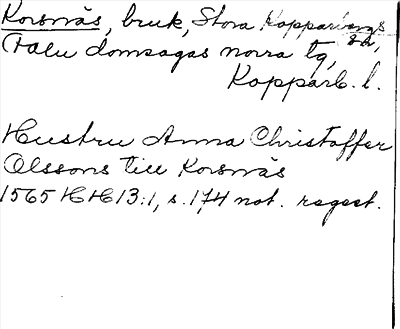 Korsnäs, bruk, Stora Kopparbergs
sn,
Falu domsagas norra tg,
Kopparb. l.
Hustru Anna Christoffer
Olssons till Korsnäs
1565 HH 13:1, s. 174 not. regest.